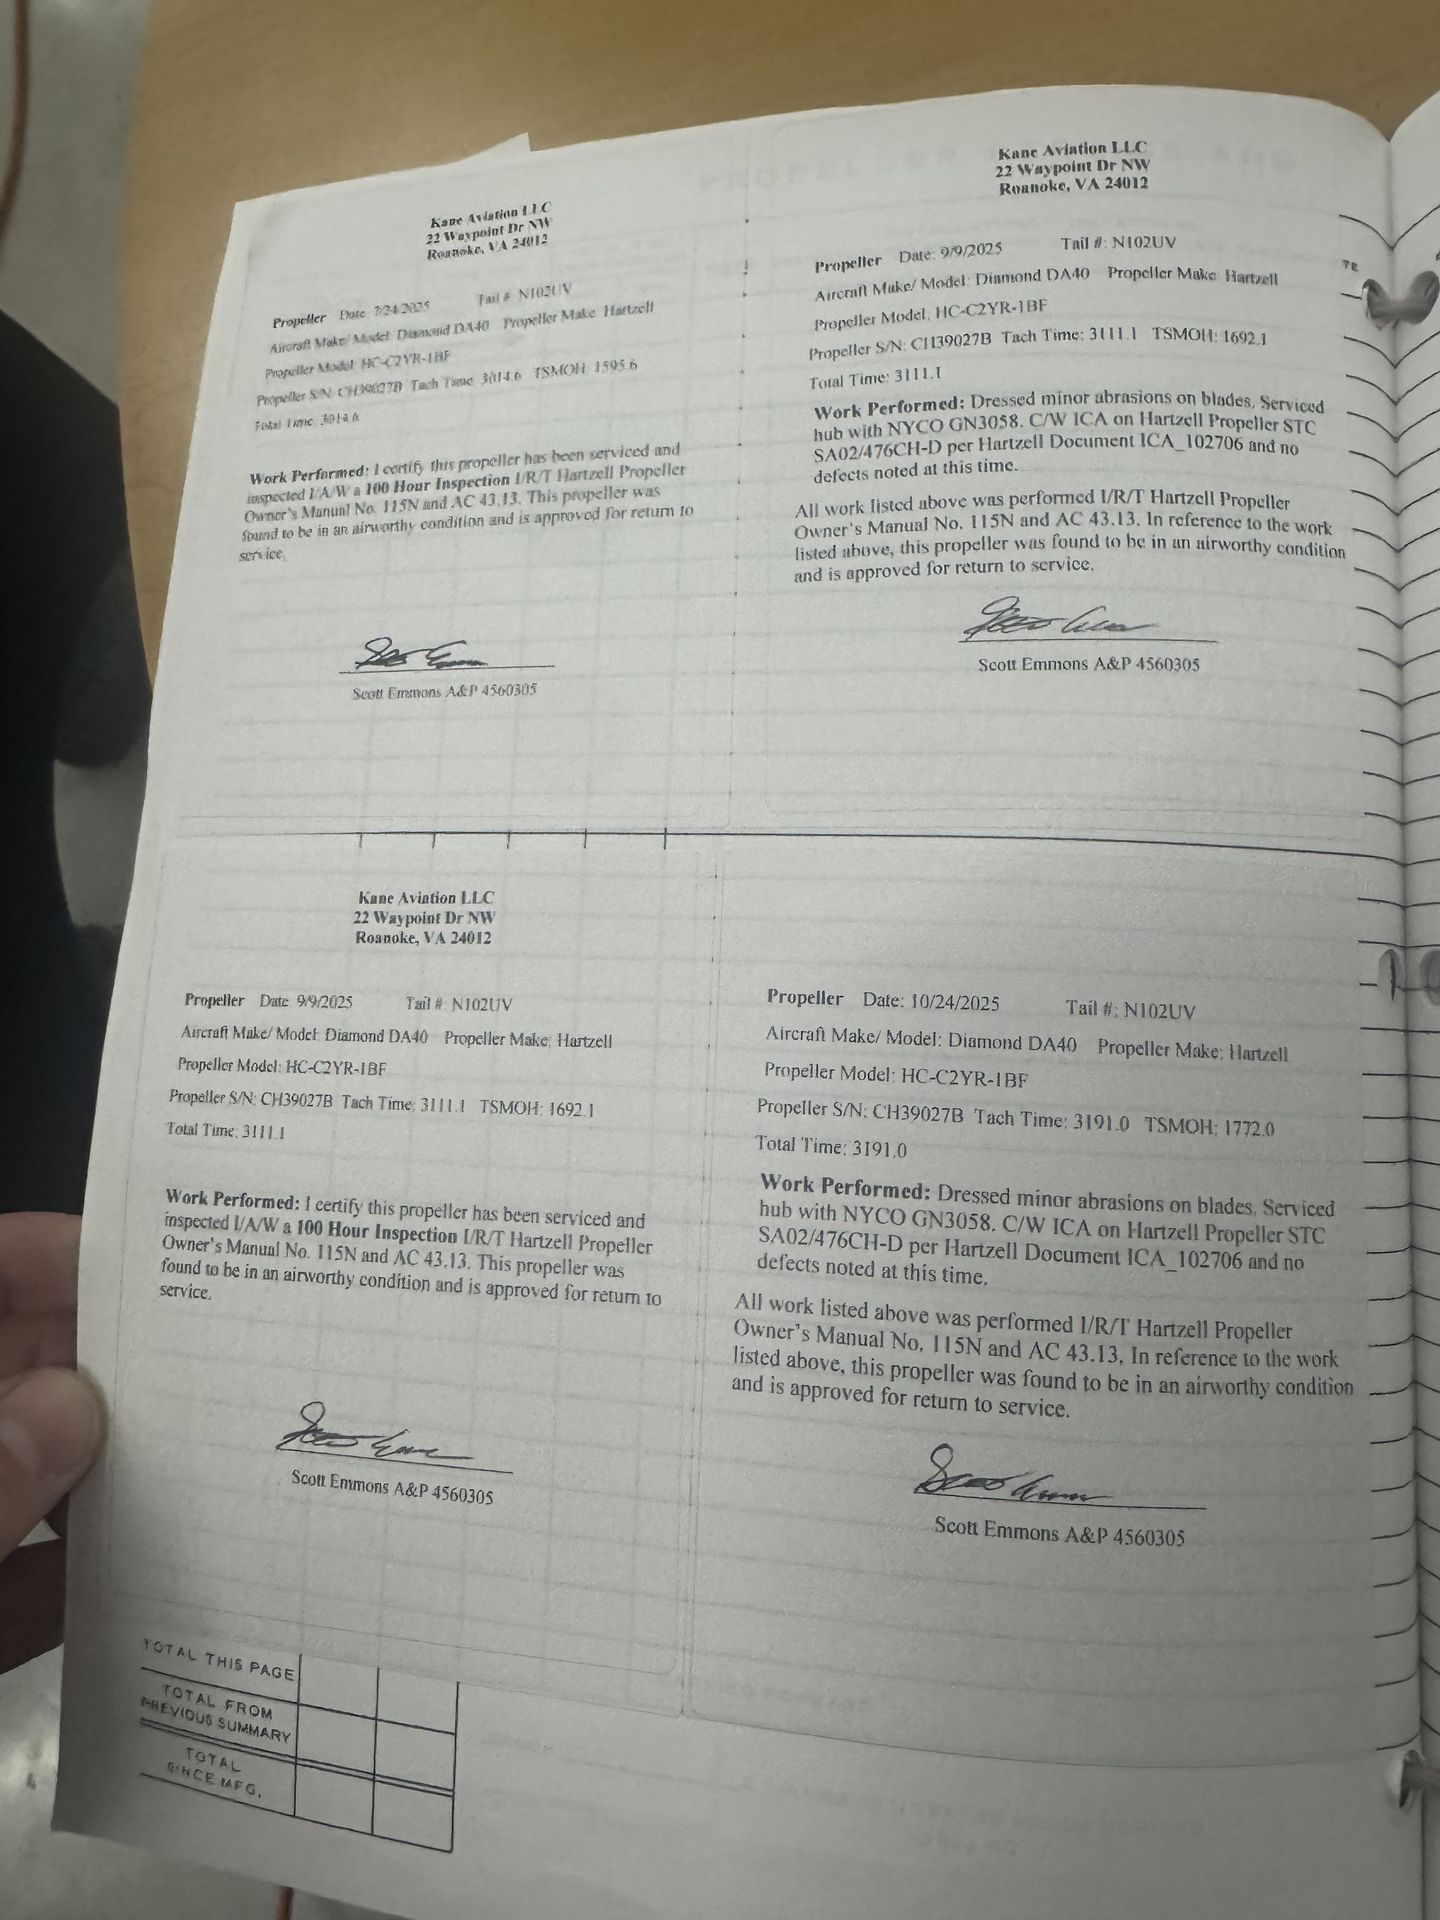 Kane Aviation LLC
22 Waypoint Dr NW
Roanoke, VA 24012
Propeller Date: 7/24/2025 Tail #: N102UV
Aircraft Make/ Model: Diamond DA40 Propeller Make: Hartzell
Propeller Model: HC-C2YR-1BF
Propeller S/N: CH39027B Tach Time: 3014.6 TSMOH: 1595.6
Total Time: 3014.6
Work Performed: I certify this propeller has been serviced and
inspected I/A/W a 100 Hour Inspection I/R/T Hartzell Propeller
Owner's Manual No. 115N and AC 43.13. This propeller was
found to be in an airworthy condition and is approved for return to
service.
Scott Emmons A&P 4560305
Kane Aviation LLC
22 Waypoint Dr NW
Roanoke, VA 24012
Propeller Date: 9/9/2025 Tail #: N102UV
Aircraft Make/ Model: Diamond DA40 Propeller Make: Hartzell
Propeller Model: HC-C2YR-1BF
Propeller S/N: CH39027B Tach Time: 3111.1 TSMOH: 1692.1
Total Time: 3111.1
Work Performed: Dressed minor abrasions on blades. Serviced
hub with NYCO GN3058. C/W ICA on Hartzell Propeller STC
SA02/476CH-D per Hartzell Document ICA_102706 and no
defects noted at this time.
All work listed above was performed I/R/T Hartzell Propeller
Owner's Manual No. 115N and AC 43.13. In reference to the work
listed above, this propeller was found to be in an airworthy condition
and is approved for return to service.
Scott Emmons A&P 4560305
Kane Aviation LLC
22 Waypoint Dr NW
Roanoke, VA 24012
Propeller Date: 9/9/2025 Tail #: N102UV
Aircraft Make/ Model: Diamond DA40 Propeller Make: Hartzell
Propeller Model: HC-C2YR-1BF
Propeller S/N: CH39027B Tach Time: 3111.1 TSMOH: 1692.1
Total Time: 3111.1
Work Performed: I certify this propeller has been serviced and
inspected I/A/W a 100 Hour Inspection I/R/T Hartzell Propeller
Owner's Manual No. 115N and AC 43.13. This propeller was
found to be in an airworthy condition and is approved for return to
service.
Scott Emmons A&P 4560305
Propeller Date: 10/24/2025 Tail #: N102UV
Aircraft Make/ Model: Diamond DA40 Propeller Make: Hartzell
Propeller Model: HC-C2YR-1BF
Propeller S/N: CH39027B Tach Time: 3191.0 TSMOH: 1772.0
Total Time: 3191.0
Work Performed: Dressed minor abrasions on blades. Serviced
hub with NYCO GN3058. C/W ICA on Hartzell Propeller STC
SA02/476CH-D per Hartzell Document ICA_102706 and no
defects noted at this time.
All work listed above was performed I/R/T Hartzell Propeller
Owner's Manual No. 115N and AC 43.13. In reference to the work
listed above, this propeller was found to be in an airworthy condition
and is approved for return to service.
Scott Emmons A&P 4560305
TOTAL THIS PAGE
TOTAL FROM
PREVIOUS SUMMARY
TOTAL
SINCE MFG.